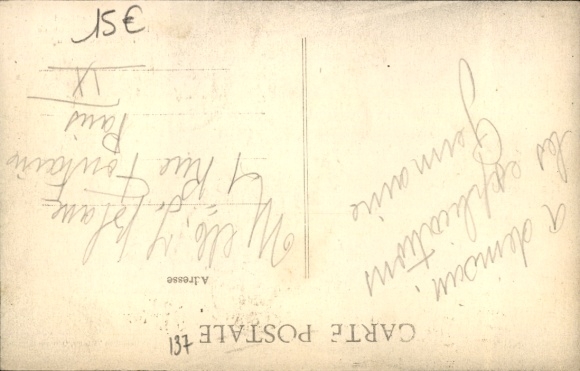 CARTE POSTALE
a demain,
les explications
Germaine
Adresse
Melle Y. Blanc
rue Fontaine
Paris
IX
137
15€